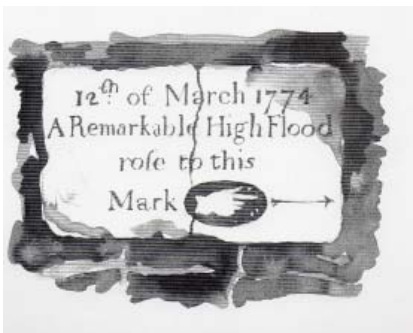 12th of March 1774
A Remarkable High Flood
roſe to this
Mark